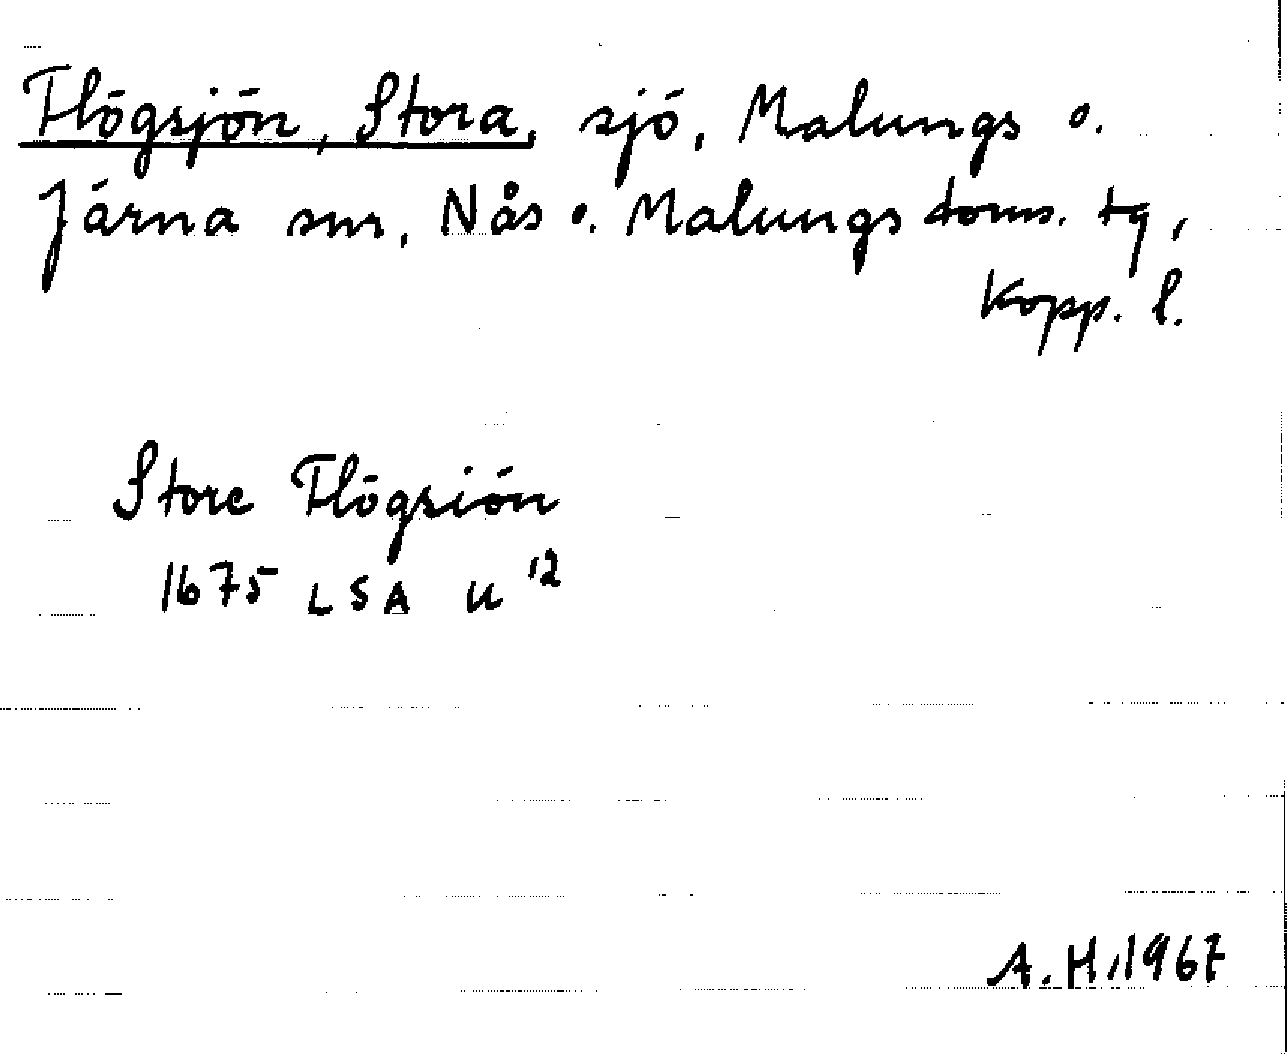 Flögsjön, Stora, sjö, Malungs o.
Järna snr, Nås o. Malungs doms. tg,
Kopp. l.
Store Flögsiön
1675 LSA U 12
A. H. 1967